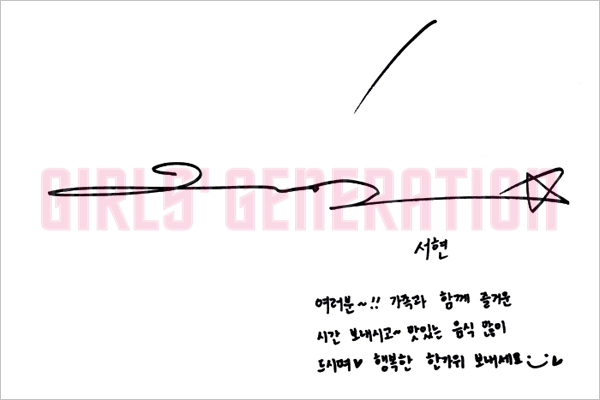 GIRLS' GENERATION
서현
여러분~!! 가족과 함께 즐거운
시간 보내시고~ 맛있는 음식 많이
드시며♥ 행복한 한가위 보내세요